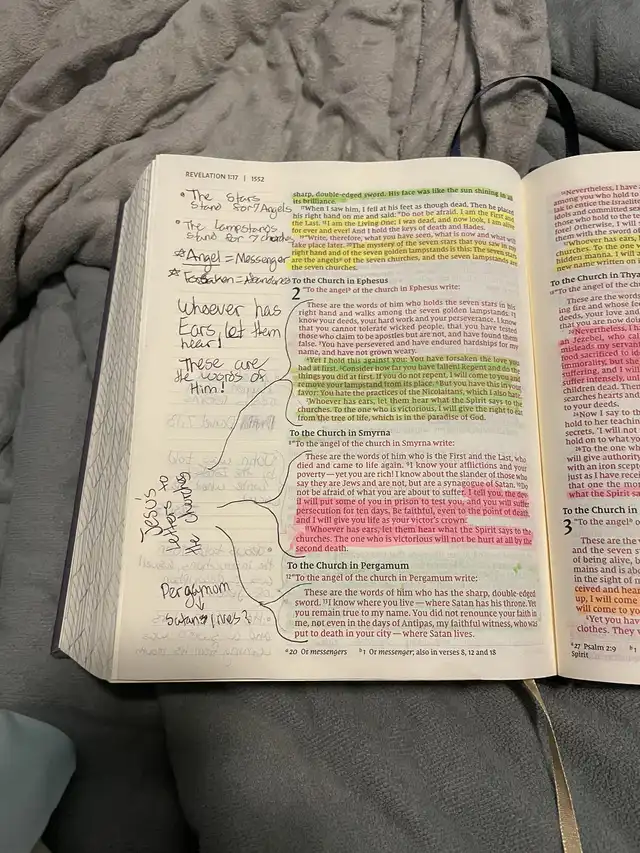 REVELATION 1:17 | 1552
• The stars
stand for 7 Angels
• The lampstands
stand for 7 churches
* Angel = Messenger
Whoever has
Ears, let them
hear!
These are
the words of
Him!
Jesus to
letters
the churches
Pergamum
Satan lives?
sharp, double-edged sword. His face was like the sun shining in all
its brilliance.
17When I saw him, I fell at his feet as though dead. Then he placed
his right hand on me and said: "Do not be afraid. I am the First and
the Last. 18I am the Living One; I was dead, and now look, I am alive
for ever and ever! And I hold the keys of death and Hades.
19"Write, therefore, what you have seen, what is now and what will
take place later. 20The mystery of the seven stars that you saw in my
right hand and of the seven golden lampstands is this: The seven stars
are the angelsa of the seven churches, and the seven lampstands are
the seven churches.
To the Church in Ephesus
2 "To the angelb of the church in Ephesus write:
These are the words of him who holds the seven stars in his
right hand and walks among the seven golden lampstands. 2I
know your deeds, your hard work and your perseverance. I know
that you cannot tolerate wicked people, that you have tested
those who claim to be apostles but are not, and have found them
false. 3You have persevered and have endured hardships for my
name, and have not grown weary.
4Yet I hold this against you: You have forsaken the love you
had at first. 5Consider how far you have fallen! Repent and do the
things you did at first. If you do not repent, I will come to you and
remove your lampstand from its place. 6But you have this in your
favor: You hate the practices of the Nicolaitans, which I also hate.
7Whoever has ears, let them hear what the Spirit says to the
churches. To the one who is victorious, I will give the right to eat
from the tree of life, which is in the paradise of God.
To the Church in Smyrna
8"To the angel of the church in Smyrna write:
These are the words of him who is the First and the Last, who
died and came to life again. 9I know your afflictions and your
poverty—yet you are rich! I know about the slander of those who
say they are Jews and are not, but are a synagogue of Satan. 10Do
not be afraid of what you are about to suffer. I tell you, the dev-
il will put some of you in prison to test you, and you will suffer
persecution for ten days. Be faithful, even to the point of death,
and I will give you life as your victor's crown.
11Whoever has ears, let them hear what the Spirit says to the
churches. The one who is victorious will not be hurt at all by the
second death.
To the Church in Pergamum
12"To the angel of the church in Pergamum write:
These are the words of him who has the sharp, double-edged
sword. 13I know where you live—where Satan has his throne. Yet
you remain true to my name. You did not renounce your faith in
me, not even in the days of Antipas, my faithful witness, who was
put to death in your city—where Satan lives.
a20 Or messengers b1 Or messenger; also in verses 8, 12 and 18
14Nevertheless, I have
among you who hold to
rak to entice the Israelite
idols and committed sex
who hold to the
Otherwise, I will
them with the sword of
17Whoever has ears,
churches. To the one
hidden manna. I will
new name written on
To the Church in Thya
18"To the ang
These are the wo
ing fire and whose fee
deeds, your love and
that you are now doi
20Nevertheless, I
an Jezebel, who cal
misleads my servan
food sacrificed to id
immorality, but she
of suffering, and I wi
suffer intensely,
children dead. Then
searches hearts and
to your deeds.
24Now I say to the
hold to her teaching
secrets, 'I will not
hold on to what yo
26To the one wh
will give authority
with an iron scept
just as I have recei
that one the mor
what the Spirit s
To the Church in
3 "To the angel
These are the w
and the seven s
of being alive, b
mains and is abo
in the sight of
ceived and hear
up, I will come
will come to yo
4Yet you ha
clothes. They
a27 Psalm 2:9 b1
Spirit